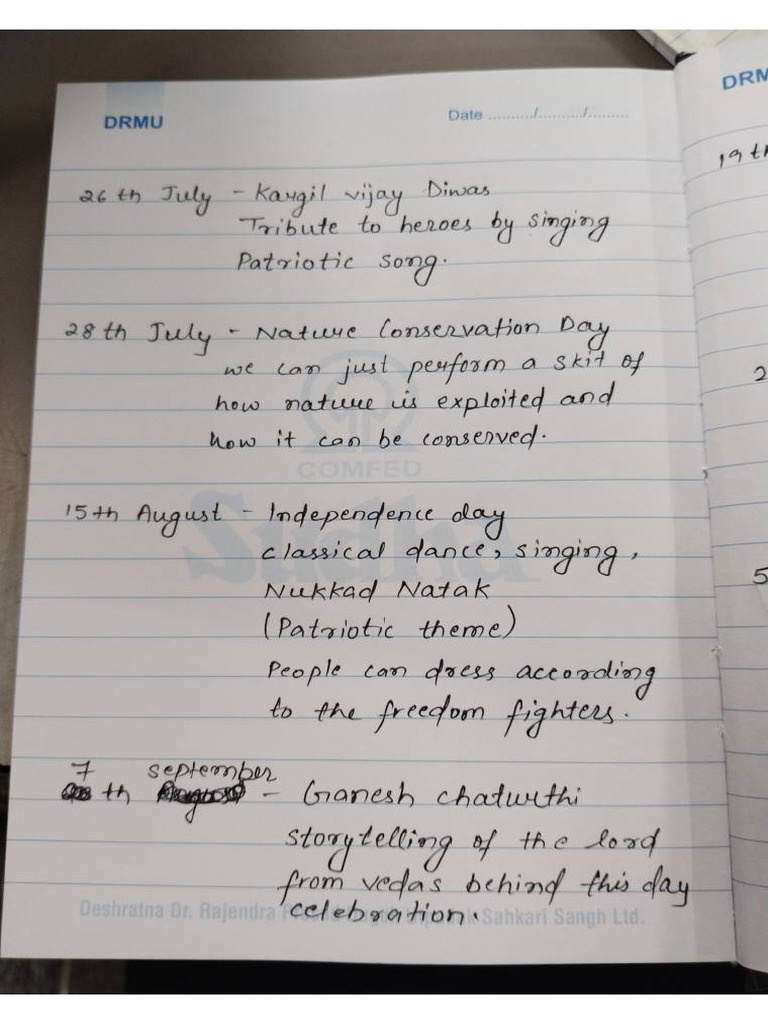 DRMU
Date ........../........../.........
26th July - Kargil vijay Diwas
Tribute to heroes by singing
Patriotic song.
28th July - Nature Conservation Day
we can just perform a skit of
how nature is exploited and
how it can be conserved.
COMFED
Sudha
15th August - Independence day
classical dance, singing,
Nukkad Natak
(Patriotic theme)
People can dress according
to the freedom fighters.
7 september
th - Ganesh chaturthi
storytelling of the lord
from vedas behind this day
celebration.
Deshratna Dr. Rajendra Sahkari Sangh Ltd.
19th
2
5